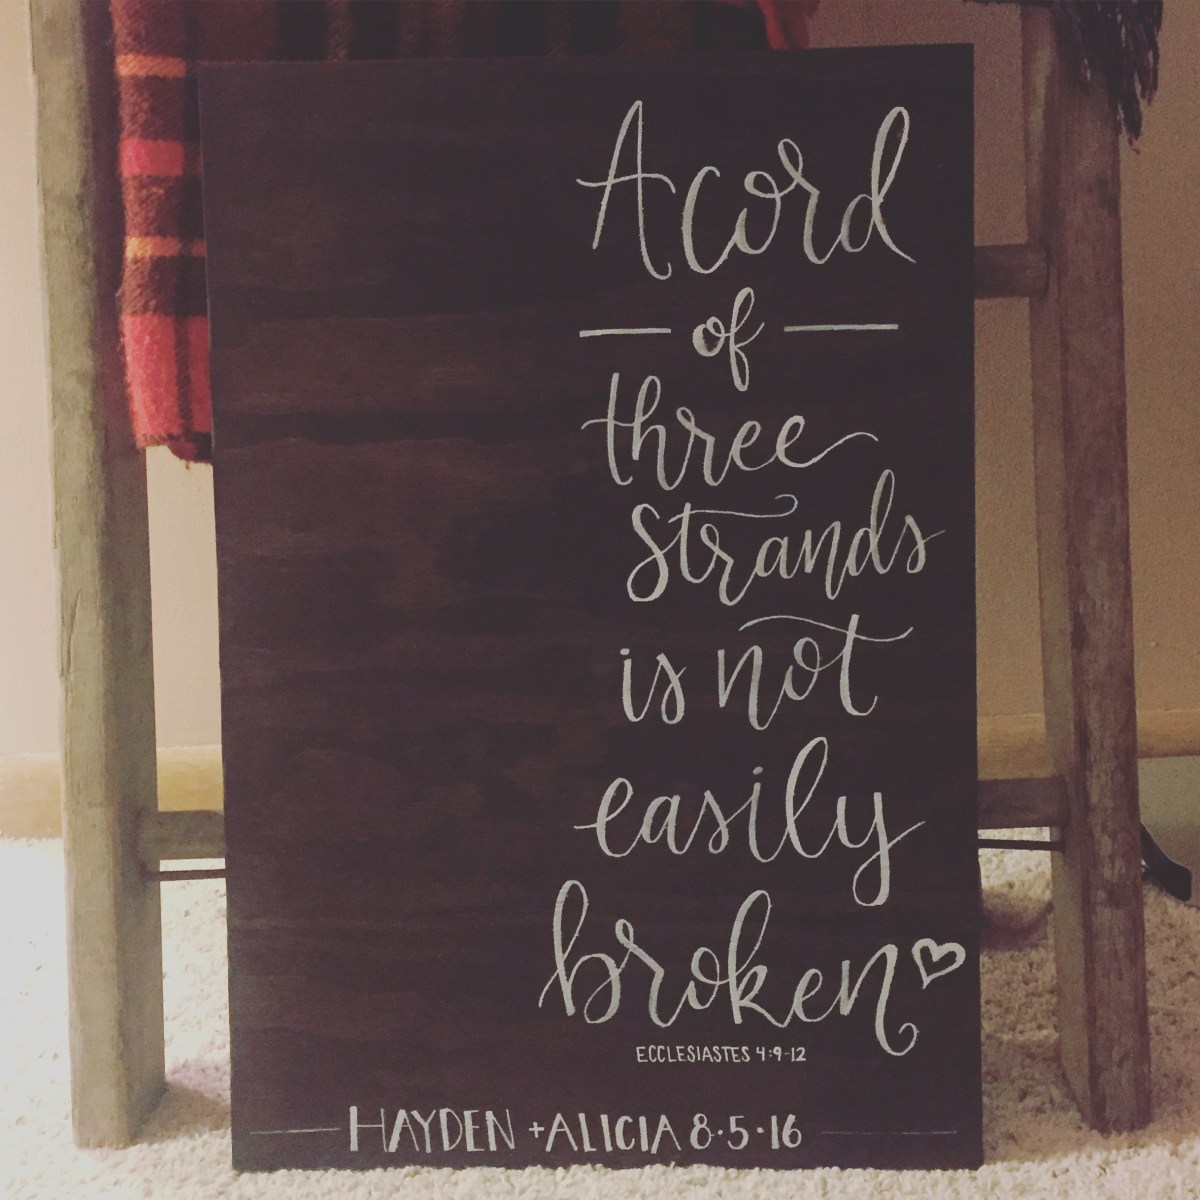 A cord
of
three
strands
is not
easily
broken
ECCLESIASTES 4:9-12
HAYDEN + ALICIA 8·5·16